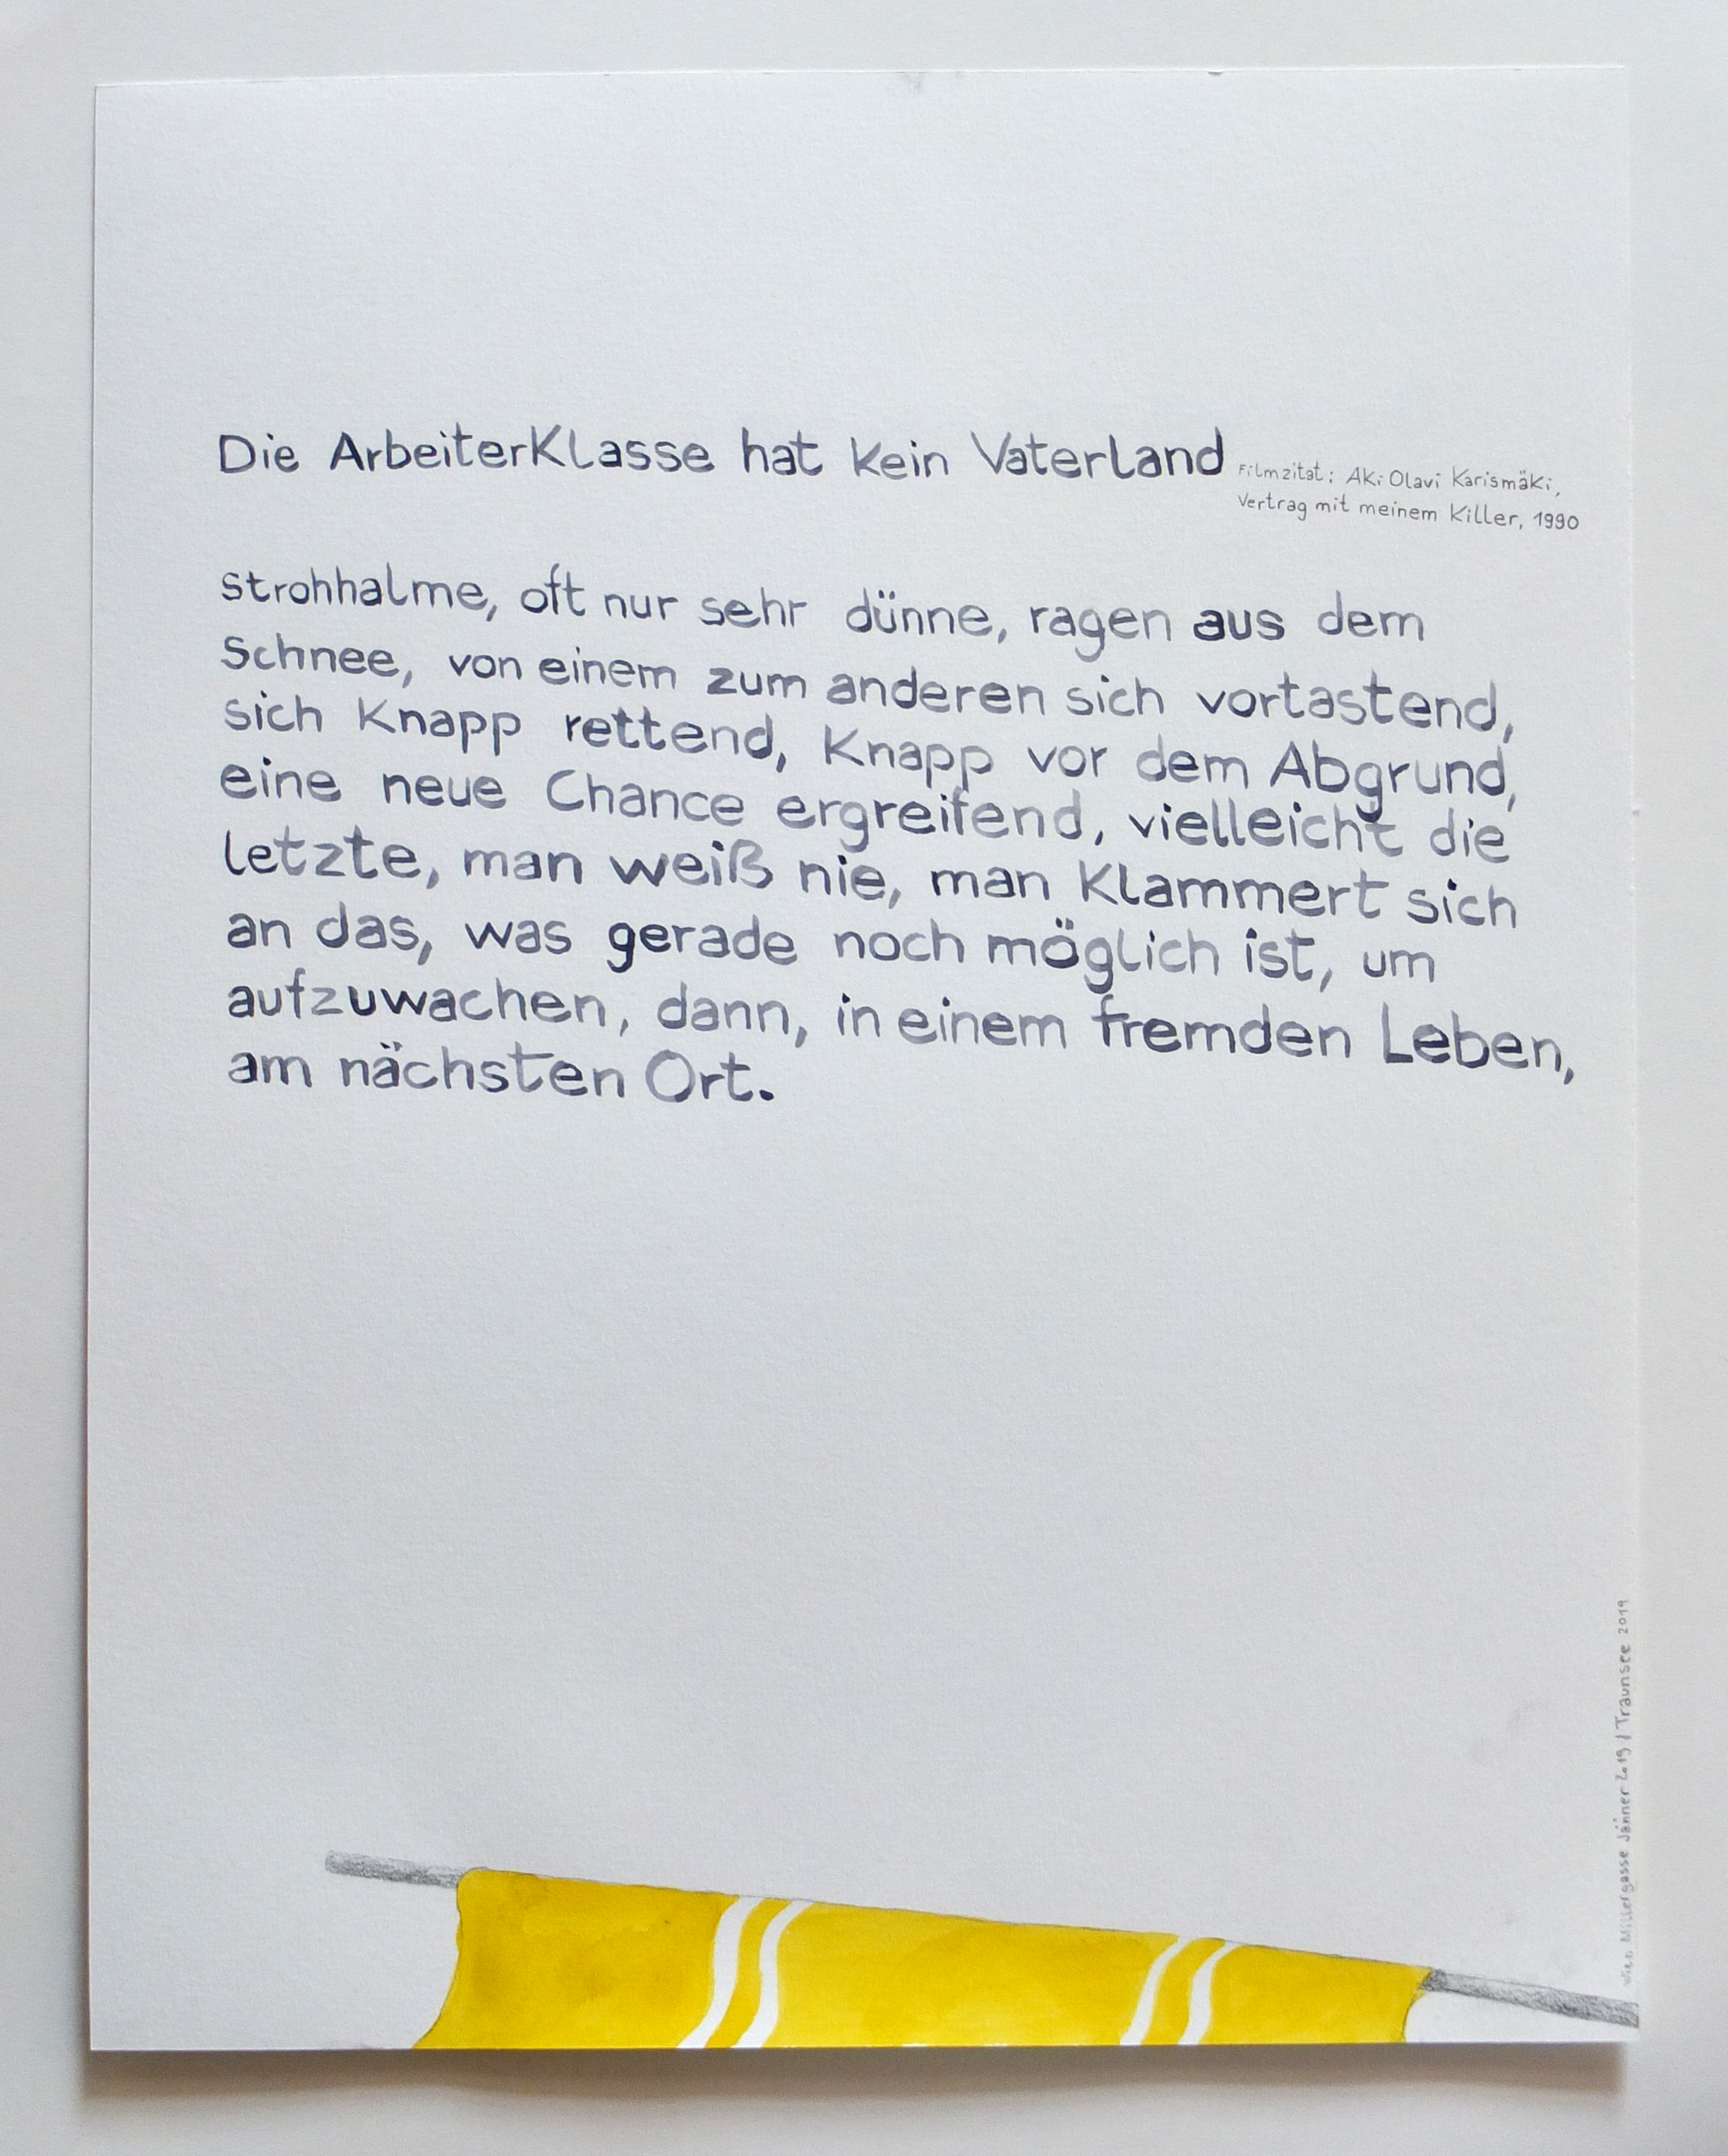 Die ArbeiterKlasse hat Kein Vaterland
Filmzitat: Aki Olavi Karismäki,
Vertrag mit meinem Killer, 1990
strohhalme, oft nur sehr dünne, ragen aus dem
Schnee, von einem zum anderen sich vortastend,
sich Knapp rettend, Knapp vor dem Abgrund,
eine neue Chance ergreifend, vielleicht die
letzte, man weiß nie, man Klammert sich
an das, was gerade noch möglich ist, um
aufzuwachen, dann, in einem fremden Leben,
am nächsten Ort.
Wien Millergasse Jänner 2019 / Traunsee 2019